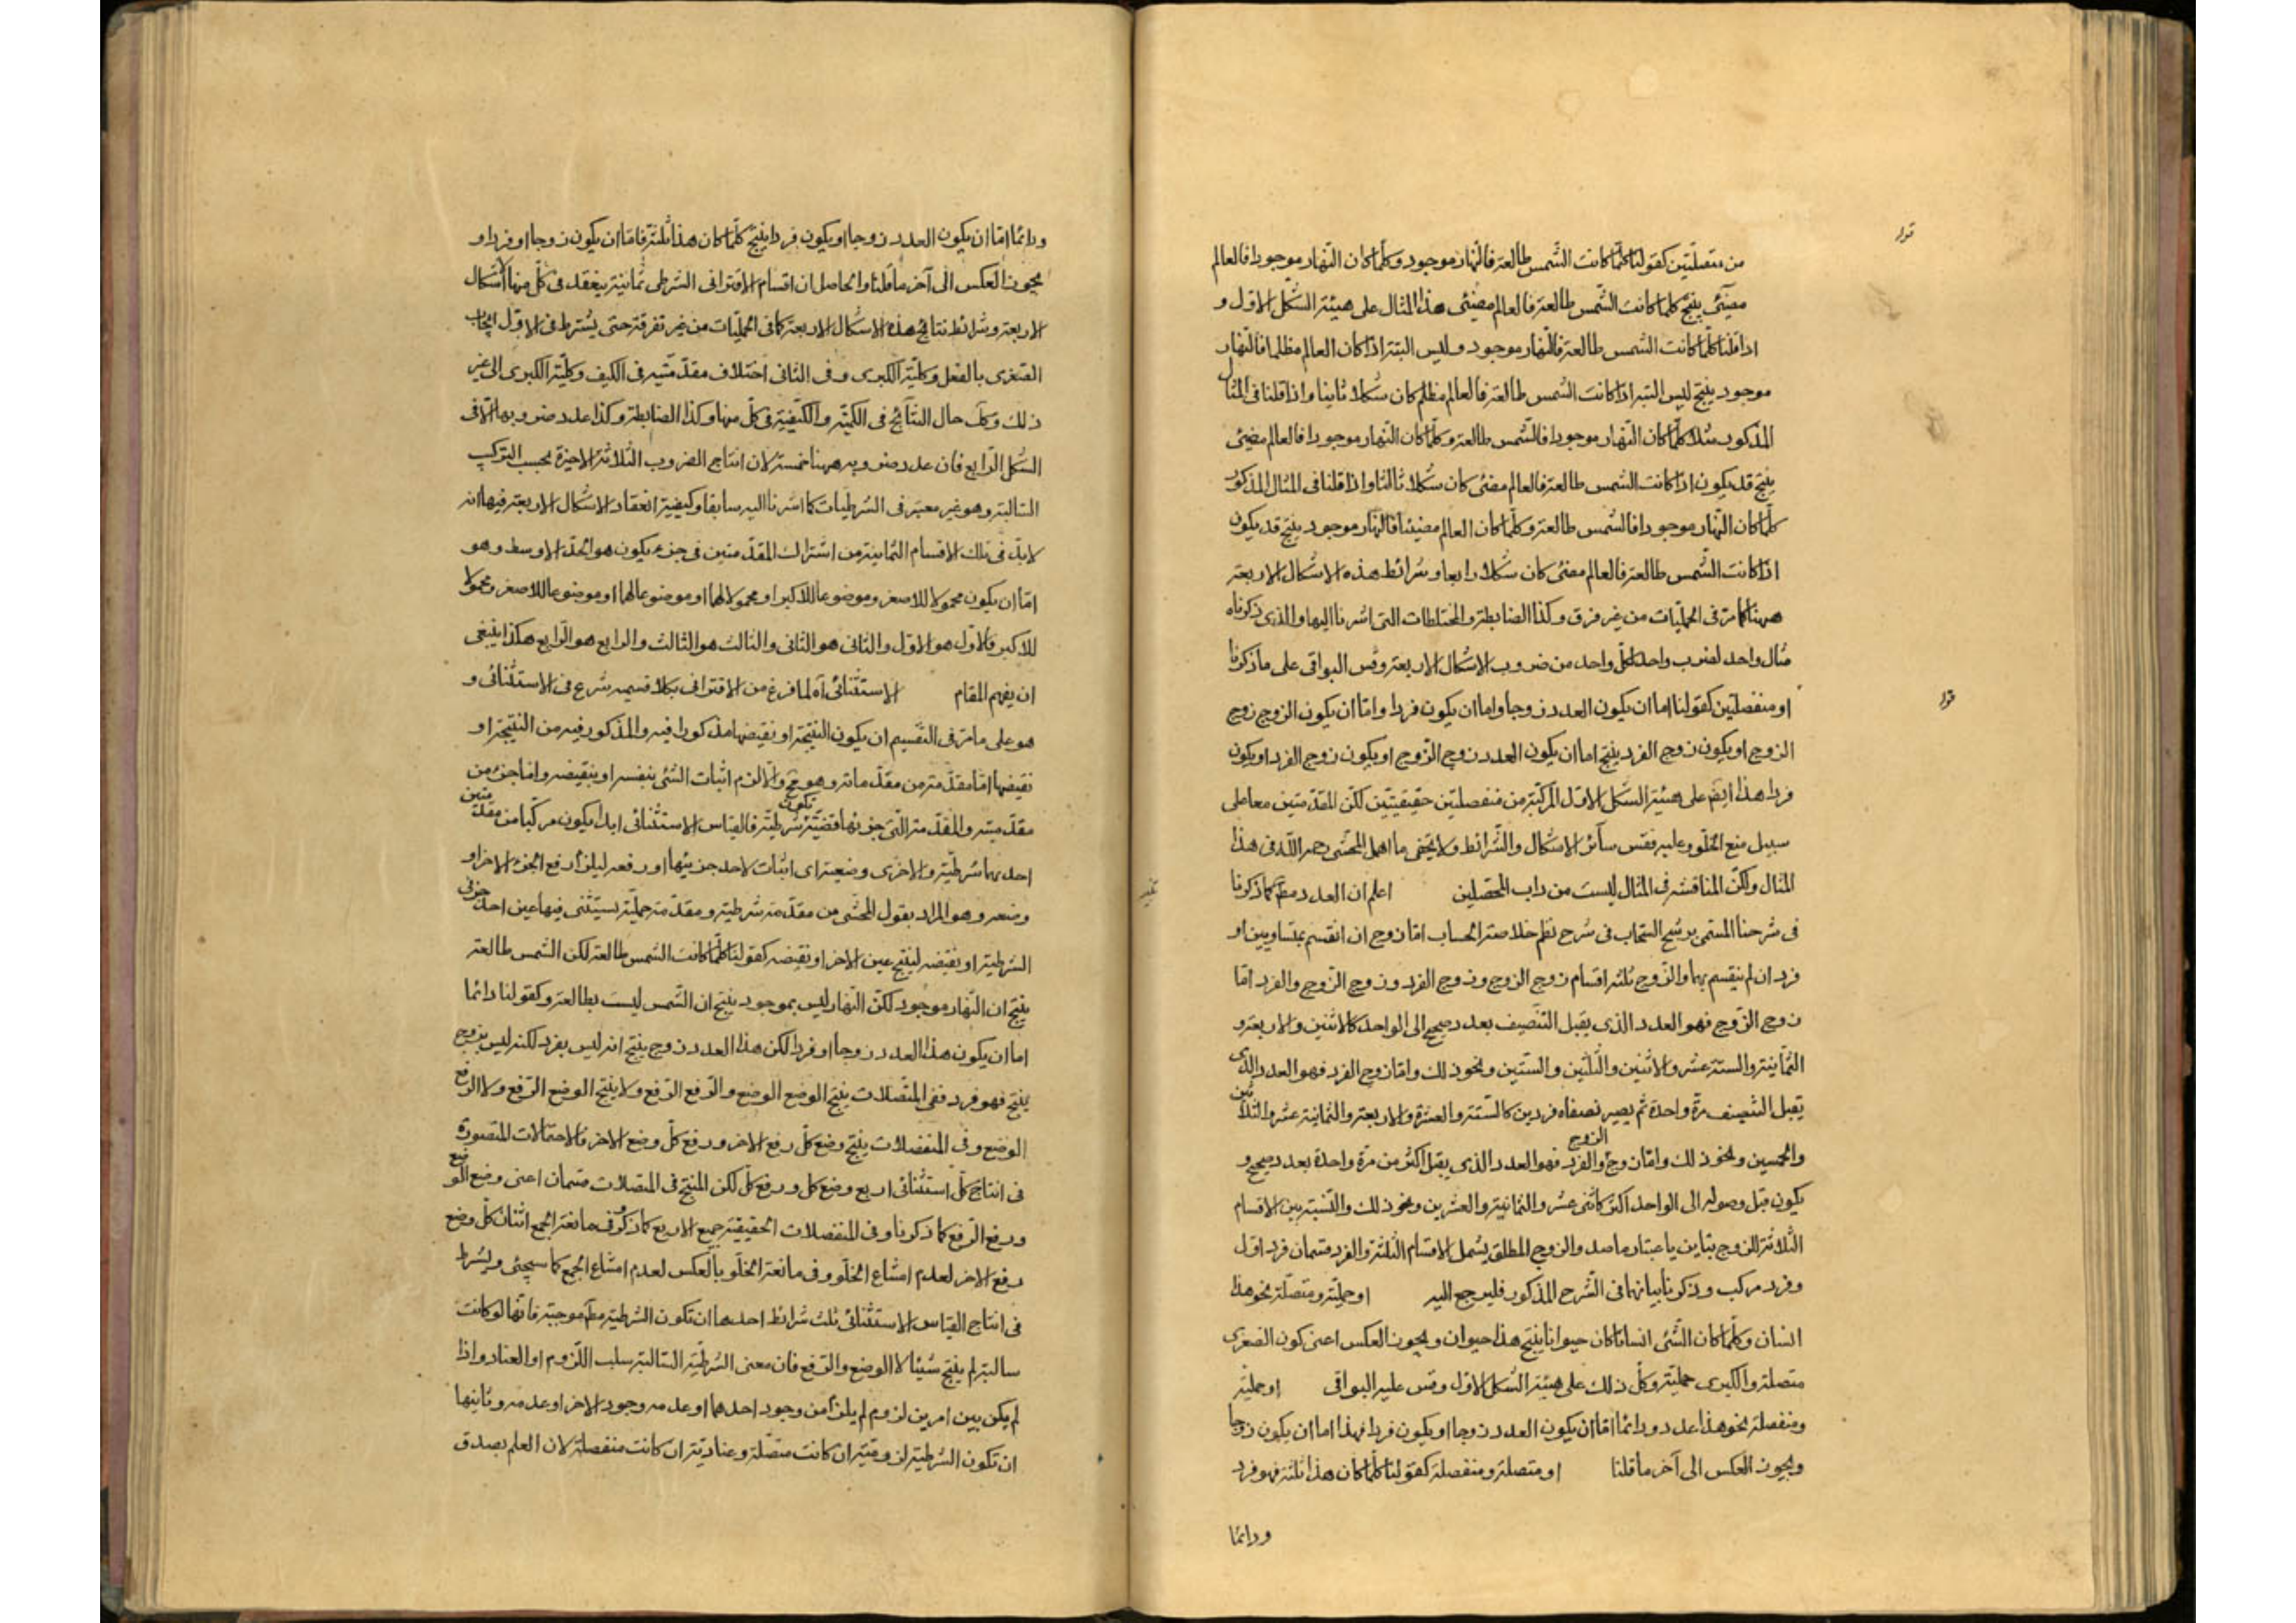 قوله
من متصلتين كقولنا كلما كانت الشمس طالعة فالنهار موجود وكلما كان النهار موجودا فالعالم
مضيئ ينتج كلما كانت الشمس طالعة فالعالم مضيئ هذا المثال على هيئة الشكل الاول و
اذا قلنا كلما كانت الشمس طالعة فالنهار موجود وليس البتة اذا كان العالم مظلما فالنهار
موجود ينتج ليس البتة اذا كانت الشمس طالعة فالعالم مظلم كان شكلا ثانيا واذا قلنا فى المثال
المذكور مثلا كلما كان النهار موجودا فالشمس طالعة وكلما كان النهار موجودا فالعالم مضيئ
ينتج قد يكون اذا كانت الشمس طالعة فالعالم مضئ كان شكلا ثالثا واذا قلنا فى المثال المذكور
كلما كان النهار موجودا فالشمس طالعة وكلما كان العالم مضيئا فالنهار موجود ينتج قد يكون
اذا كانت الشمس طالعة فالعالم مضئ كان شكلا رابعا وشرائط هذه الاشكال الاربعة
ههنا كما مر فى الحمليات من غير فرق وكذا الضابطة والمختلطات التى اشرنا اليها والذى ذكرناه
مثال واحد لضرب واحد لكل واحد من ضروب الاشكال الاربعة وقس البواقى على ما ذكرنا
قوله
او منفصلتين كقولنا اما ان يكون العدد زوجا واما ان يكون فردا واما ان يكون الزوج زوج
الزوج او يكون زوج الفرد ينتج اما ان يكون العدد زوج الزوج او يكون زوج الفرد او يكون
فردا هذا ايضا على هيئة الشكل الاول المركبة من منفصلتين حقيقيتين لكن المقدمتين معا على
سبيل منع الخلو وعليه فقس سائر الاشكال والشرائط ولا يخفى ما اهمل المحشى رحمه الله فى هذا
المثال ولكن المناقشة فى المثال ليست من داب المحصلين اعلم ان العدد مطلقا كما ذكرنا
فى شرحنا المسمى برشح السحاب فى شرح نظم خلاصة الحساب اما زوج ان انقسم بمتساويين او
فرد ان لم ينقسم بهما والزوج ثلثة اقسام زوج الزوج وزوج الفرد وزوج الزوج والفرد اما
زوج الزوج فهو العدد الذى يقبل التنصيف بعدد صحيح الى الواحد كالاثنين والاربعة و
الثمانية والستة عشر والاثنين والثلثين والستين ونحو ذلك واما زوج الفرد فهو العدد الذى
يقبل التنصيف مرة واحدة ثم يصير نصفاه فردين كالستة والعشرة والاربعة والثمانية عشر والثلاثين
والخمسين ونحو ذلك واما زوج الزوج والفرد فهو العدد الذى يقبل اكثر من مرة واحدة بعدد صحيح و
يكون قبل وصوله الى الواحد اكثر كاثنى عشر والثمانية والعشرين ونحو ذلك والنسبة بين الاقسام
الثلاثة للزوج تباين باعتبار ما صدق والزوج المطلق يشمل الاقسام الثلثة والفرد قسمان فرد اول
وفرد مركب وذكرنا بيانهما فى الشرح المذكور فليرجع اليه او حملية ومتصلة نحو هذا
انسان وكلما كان الشئ انسانا كان حيوانا ينتج هذا حيوان ويجوز العكس اعنى كون الصغرى
متصلة والكبرى حملية وكل ذلك على هيئة الشكل الاول وقس عليه البواقى او حملية
ومنفصلة نحو هذا عدد ودائما اما ان يكون العدد زوجا او يكون فردا فهذا اما ان يكون زوجا
ويجوز العكس الى آخر ما قلنا او متصلة ومنفصلة كقولنا كلما كان هذا ثلثة فهو فرد
ودائما
ودائما اما ان يكون العدد زوجا او يكون فردا ينتج كلما كان هذا ثلثة فاما ان يكون زوجا او فردا و
يجوز العكس الى آخر ما قلنا والحاصل ان اقسام الاقترانى الشرطى ثمانية ينعقد فى كل منها الاشكال
الاربعة وشرائط نتائج هذه الاشكال الاربعة كما فى الحمليات من غير تفرقة حتى يشترط فى الاول ايجاب
الصغرى بالفعل وكلية الكبرى وفى الثانى اختلاف مقدمتيه فى الكيف وكلية الكبرى الى غير
ذلك وكذا حال النتائج فى الكمية والكيفية فى كل منها وكذا الضابطة وكذا عدد ضروبها الا فى
الشكل الرابع فان عدد ضروبه ههنا خمسة لان انتاج الضروب الثلاثة الاخيرة بحسب التركيب
السالبة وهو غير معتبر فى الشرطيات كما اشرنا اليه سابقا وكيفية انعقاد الاشكال الاربعة فيها انه
لابد فى تلك الاقسام الثمانية من اشتراك المقدمتين فى جزء يكون هو الحد الاوسط وهو
اما ان يكون محمولا للاصغر وموضوعا للاكبر او محمولا لهما او موضوعا لهما او موضوعا للاصغر ومحمولا
للاكبر فالاول هو الاول والثانى هو الثانى والثالث هو الثالث والرابع هو الرابع هكذا ينبغى
ان يفهم المقام الاستثنائى آه لما فرغ من الاقترانى بكلا قسميه شرع فى الاستثنائى و
هو على ما مر فى التقسيم ان يكون النتيجة او نقيضها مذكورا فيه والمذكور فيه من النتيجة او
نقيضها اما مقدمة من مقدماته وهو مح والا لزم اثبات الشئ بنفسه او بنقيضه واما جزء من
مقدمته والمقدمة التى جزئها قضية تكون شرطية فالقياس الاستثنائى ابدا يكون مركبا من مقدمتين
احدهما شرطية والاخرى وضعية اى اثبات لاحد جزئيها او رفعه ليلزم رفع الجزء الاخر او
وضعه وهو المراد بقول المحشى من مقدمة شرطية ومقدمة حملية يستثنى فيها عين احد جزئى
الشرطية او نقيضه لينتج عين الاخر او نقيضه كقولنا كلما كانت الشمس طالعة لكن الشمس طالعة
ينتج ان النهار موجود لكن النهار ليس بموجود ينتج ان الشمس ليست بطالعة وكقولنا دائما
اما ان يكون هذا العدد زوجا او فردا لكن هذا العدد زوج ينتج انه ليس بفرد لكنه ليس بزوج
ينتج فهو فرد ففى المتصلات ينتج الوضع الوضع والرفع الرفع ولا ينتج الوضع الرفع ولا الرفع
الوضع وفى المنفصلات ينتج وضع كل رفع الاخر ورفع كل وضع الاخر فالاحتمالات المتصورة
فى انتاج كل استثنائى اربع وضع كل ورفع كل لكن المنتج فى المتصلات قسمان اعنى وضع الوضع
ورفع الرفع كما ذكرنا وفى المنفصلات الحقيقية جميع الاربع كما ذكر وفى مانعة الجمع اثنان كل وضع
رفع الاخر لعدم امتناع الخلو وفى مانعة الخلو بالعكس لعدم امتناع الجمع كما سيجئ ويشترط
فى انتاج القياس الاستثنائى ثلث شرائط احدها ان تكون الشرطية مط موجبة فانها لو كانت
سالبة لم ينتج شيئا لا الوضع والرفع فان معنى الشرطية السالبة سلب اللزوم او العناد واذا
لم يكن بين امرين لزوم لم يلزم من وجود احدهما او عدمه وجود الاخر او عدمه وثانيها
ان تكون الشرطية لزومية ان كانت متصلة وعنادية ان كانت منفصلة لان العلم بصدق